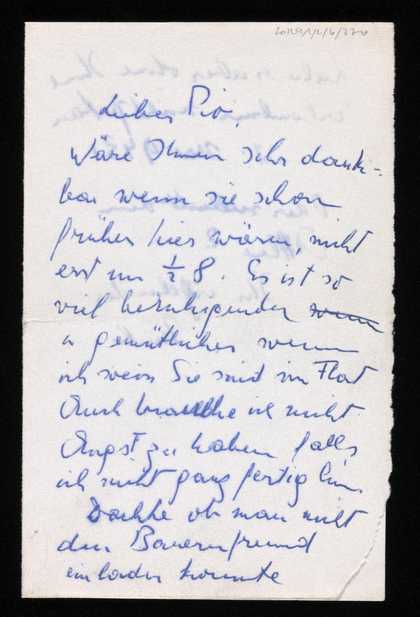 Lieber Pio,
Wäre Ihnen sehr dank-
bar wenn sie schon
früher hier wären, nicht
erst um ½ 8. Es ist so
viel beruhigender wenn
u gemütlicher wenn
ich weiss Sie sind im Flat
Auch brauche ich nicht
Angst zu haben falls
ich nicht ganz fertig bin.
Dachte ob man nicht
den Bauernfreund
einladen könnte